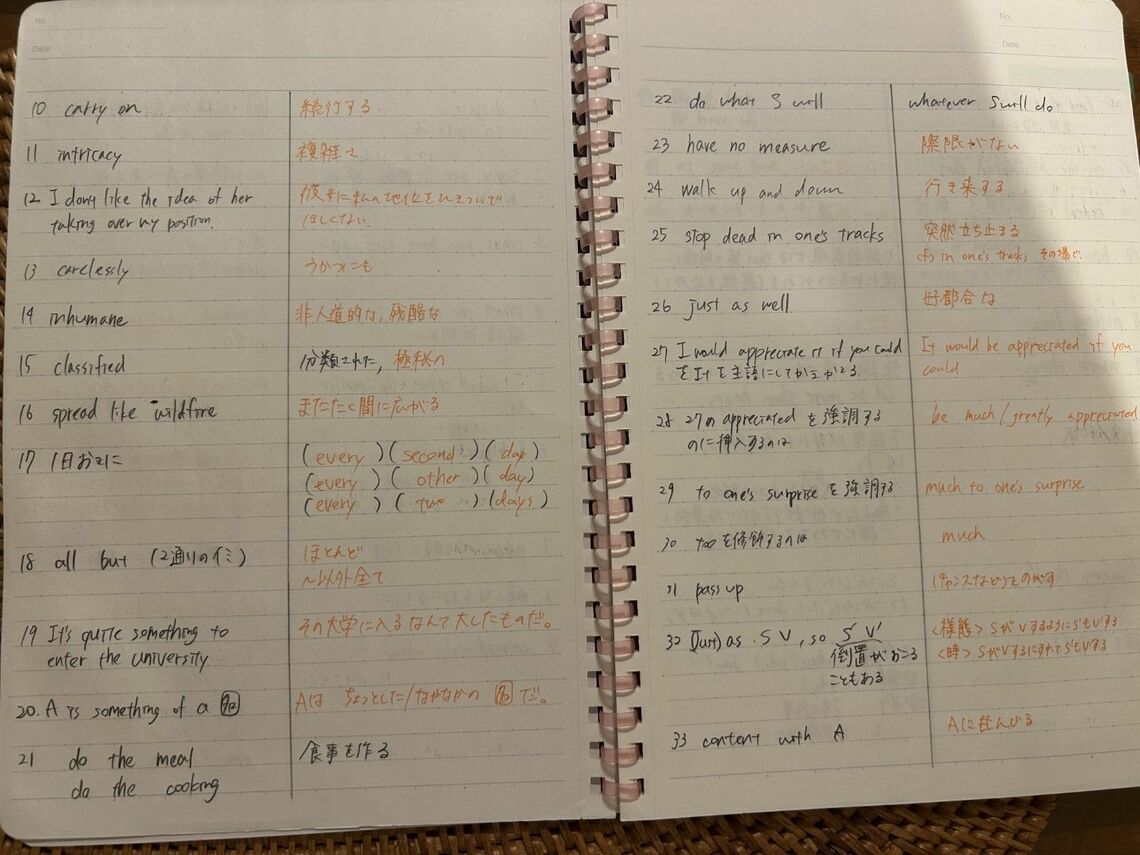 No.
Date
10 carry on 続行する
11 intricacy 複雑さ
12 I don't like the idea of her 彼女に私の地位をひきついで
taking over my position. ほしくない
13 carelessly うかつにも
14 inhumane 非人道的な, 残酷な
15 classified 分類された, 極秘の
16 spread like wildfire またたく間に広がる
17 1日おきに (every)(second)(day)
(every)(other)(day)
(every)(two)(days)
18 all but (2通りのイミ) ほとんど
~以外全て
19 It's quite something to その大学に入るなんて大したものだ。
enter the university
20. A is something of a 名 Aは ちょっとした/なかなかの 名 だ。
21 do the meal 食事を作る
do the cooking
No.
Date
22 do what S will whatever S will do
23 have no measure 際限がない
24 walk up and down 行き来する
25 stop dead in one's tracks 突然立ち止まる
in one's tracks その場で
26 just as well 好都合な
27 I would appreciate it if you could It would be appreciated if you
をItを主語にしてかきかえる could
28 27のappreciatedを強調する be much/greatly appreciated
のに挿入するのは
29 to one's surpriseを強調する much to one's surprise
30 tooを修飾するのは much
31 pass up (チャンスなど)をのがす
32 (Just) as S V, so S' V' <様態> SがVするようにS'もV'する
倒置がおこる <時> SがVするにつれてS'もV'する
こともある
33 content with A Aに甘んじる